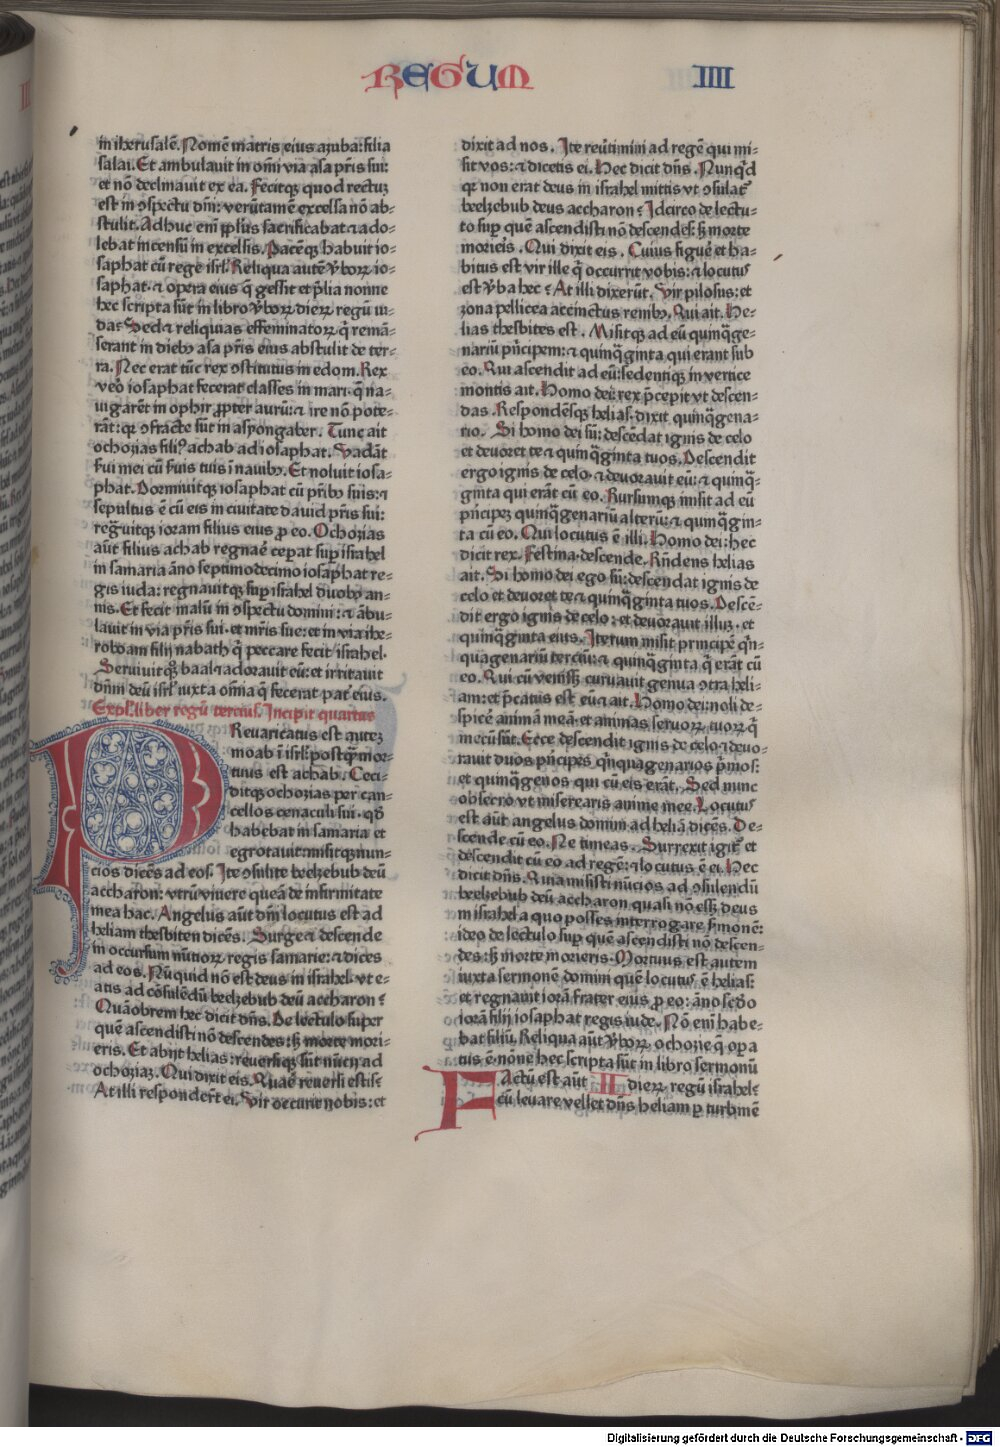 REGUM IIII
in iherusalē. Nomē matris eius azuba: filia
salai. Et ambulauit in om̄i via asa pr̄is sui:
et nō declinauit ex ea. Fecitqꝫ quod rectuꝫ
est in ꝯspectu dn̄i: verūtamē excelsa nō ab-
stulit. Adhuc eni̅ pp̄lus sacrificabat ⁊ ado-
lebat incensū in excelsis. Pacēqꝫ habuit io-
saphat cū rege isrl̄. Reliqua autē v̄boꝝ io-
saphat. ⁊ opera eius q̄ gessit et p̄lia nonne
hec scripta sūt in libro v̄boꝝ dieꝝ regū iu-
da? Sed ⁊ reliquias effeminatoꝝ q̄ remā-
serant in diebꝰ asa pr̄is eius abstulit de ter-
ra. Nec erat tūc rex ꝯstitutus in edom. Rex
veo̅ iosaphat fecerat classes in mari. q̄ na-
uigarēt in ophir ꝓpter aurū: ⁊ ire nō pote-
rāt: qꝛ ꝯfracte sūt in asyongaber. Tunc ait
ochozias filiꝰ achab ad iosaphat. Vadāt
s̄ui mei cū s̄uis tuis ī nauibꝰ. Et noluit iosa-
phat. Dormiuitqꝫ iosaphat cū pr̄ibꝰ suis: ⁊
sepultus ē cū eis in ciuitate dauid pr̄is sui:
reg̅uitqꝫ ioram filius eius ꝓ eo. Ochozias
aūt filius achab regnae̅ cep̄at sup̄ israhel
in samaria āno septimodecimo iosaphat re-
gis iuda: regnauitqꝫ sup̄ israhel duobꝰ an-
nis. Et fecit malū in ꝯspectu domini: ⁊ ābu-
lauit in via pr̄is sui. et mr̄is sue: et in via ihe-
roboam filij nabath q̄ peccare fecit israhel.
Seruiuit qꝫ baal ⁊ adorauit eū: et irritauit
dn̄m deū isrl̄ iuxta om̄ia q̄ fecerat pat̄ eius.
Expl̄. liber regū tercius. Incipit quartus
Preuaricatus est auteꝫ
moab ī isrl̄: postqꝫ mor-
tuus est achab. Ceci-
ditqꝫ ochozias per can-
cellos cenaculi sui. qd̄
habebat in samaria et
egrotauit: misitqꝫ nun-
cios dicēs ad eos. Ite ꝯsulite beelzebub deū
accharon: vtrū viuere queā de infirmitate
mea hac. Angelus aūt dn̄i locutus est ad
heliam thesbiten dicēs. Surge ⁊ descende
in occursum nūtioꝝ regis samarie: ⁊ dices
ad eos. Nūquid nō est deus in israhel. vt e-
atis ad cōsulēdū beelzebub deū accharon?
Quāobrem hec dicit dn̄s. De lectulo super
quē ascendisti nō descendes: sꝫ morte mori-
eris. Et abijt helias: reuersiqꝫ sūt nūcij ad
ochoziaꝫ. Qui dixit eis. Quae̅ reuersi estis?
At illi respondert̄ ei. Vir occurit nobis: et
dixit ad nos. Ite reūtimini ad regē qui mi-
sit vos: ⁊ dicetis ei. Hec dicit dn̄s. Nunqd̄
qꝛ non erat deus in israhel mittis vt ꝯsulat᷑
beelzebub deus accharon? Idcirco de lectu-
lo sup̄ quē ascendisti nō descendes: sꝫ morte
morieris. Qui dixit eis. Cuius figue̅ et ha-
bitus est vir ille q̄ occurrit vobis: ⁊ locutꝰ
est v̄ba hec? At illi dixerūt. Vir pilosus: et
zona pellicea accinctus renibꝰ. Qui ait. He-
lias thesbites est. Misitqꝫ ad eū quinq̄ge-
nariū prī̄cipem: ⁊ quinq̄ginta qui erant sub
eo. Qui ascendit ad eū: sedentiqꝫ in vertice
montis ait. Homo dei: rex p̄cepit vt descen-
das. Respondēsqꝫ helias. dixit quinq̄gena-
rio. Si homo dei sū: descēdat ignis de celo
et deuoret te ⁊ quinq̄ginta tuos. Descendit
ergo ignis de celo. ⁊ deuorauit eū: ⁊ quinq̄-
ginta qui erāt cū eo. Rursumqꝫ misit ad eū
prī̄cipeꝫ quinq̄genariū alterū: ⁊ quinq̄gin-
ta cū eo. Qui locutus ē illi. Homo dei: hec
dicit rex. Festina. descende. Rn̄dens helias
ait. Si homo dei ego sū: descendat ignis de
celo et deuoret te ⁊ quinq̄ginta tuos. Descē-
dit ergo ignis de celo: et deuorauit illuꝫ. et
quinq̄ginta eius. Iterum misit principē qn̄-
quagenariū terciū: ⁊ quinq̄ginta q̄ erāt cū
eo. Qui cū venissꝫ curuauit genua ꝯtra heli-
am: et p̄catus est eū ⁊ ait. Homo dei: noli de-
spicē animā meā: et animas seruoꝝ. tuoꝝ q̄
mecū sūt. Ecce descendit ignis de celo ⁊ deuo-
rauit duos prī̄cipes qn̄quagenarios p̄mos:
et quinq̄genos qui cū eis erāt. Sed nunc
obsecro vt miserearis anime mee. Locutꝰ
est aūt angelus domini ad heliā dicēs. De-
scende cū eo. Ne timeas. Surrexit igit᷑ et
descendit cū eo ad regē: ⁊ locutus ē ei. Hec
dicit dn̄s. Quia misisti nūcios ad ꝯsulendū
beelzebub deū accharon quasi nō essꝫ deus
in israhel a quo posses interrogare s̄monē:
ideo de lectulo sup̄ quē ascendisti nō descen-
des: sꝫ morte morieris. Mortuus est autem
iuxta sermonē domini quē locutꝰ ē helias:
et regnauit iorā frater eius ꝓ eo: āno scd̄o
iorā filij iosaphat regis iude. Nō eni̅ habe-
bat filiū. Reliqua aūt v̄boꝝ. ochozie q̄ op̄a
tus ē. nōne hec scripta sūt in libro sermonū
dieꝝ regū israhel? II
Factū est aūt
cū leuare vellet dn̄s heliam ꝑ turbinē
Digitalisierung gefördert durch die Deutsche Forschungsgemeinschaft - DFG